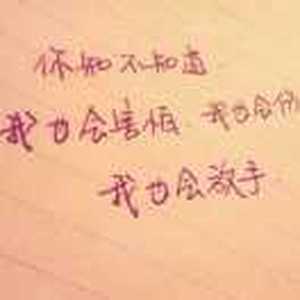 你知不知道
我也会害怕 我也会
我也会放手